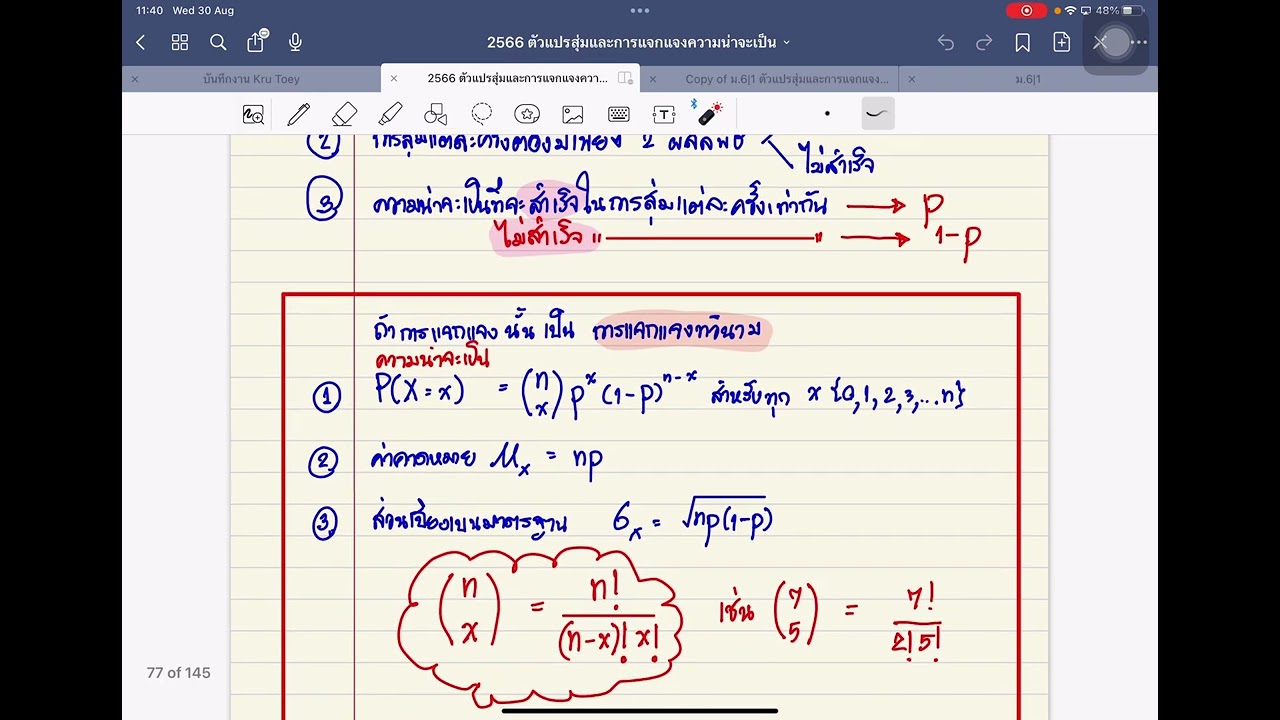 11:40 Wed 30 Aug
48%
2566 ตัวแปรสุ่มและการแจกแจงความน่าจะเป็น
บันทึกงาน Kru Toey
2566 ตัวแปรสุ่มและการแจกแจงควา...
Copy of ม.6|1 ตัวแปรสุ่มและการแจกแจง...
ม.6|1
② การสุ่มแต่ละครั้งต้องมีเพียง 2 ผลลัพธ์
ไม่สำเร็จ
③ ความน่าจะเป็นที่จะสำเร็จในการสุ่มแต่ละครั้งเท่ากัน → p
ไม่สำเร็จ " ——— " → 1-p
ถ้าการแจกแจงนั้นเป็น การแจกแจงทวินาม
ความน่าจะเป็น
① P(X=x) = (n x) p^x (1-p)^{n-x} สำหรับทุก x {0,1,2,3,...n}
② ค่าคาดหมาย μ_x = np
③ ส่วนเบี่ยงเบนมาตรฐาน σ_x = √np(1-p)
(n x) = n! / (n-x)! x! เช่น (7 5) = 7! / 2! 5!
77 of 145